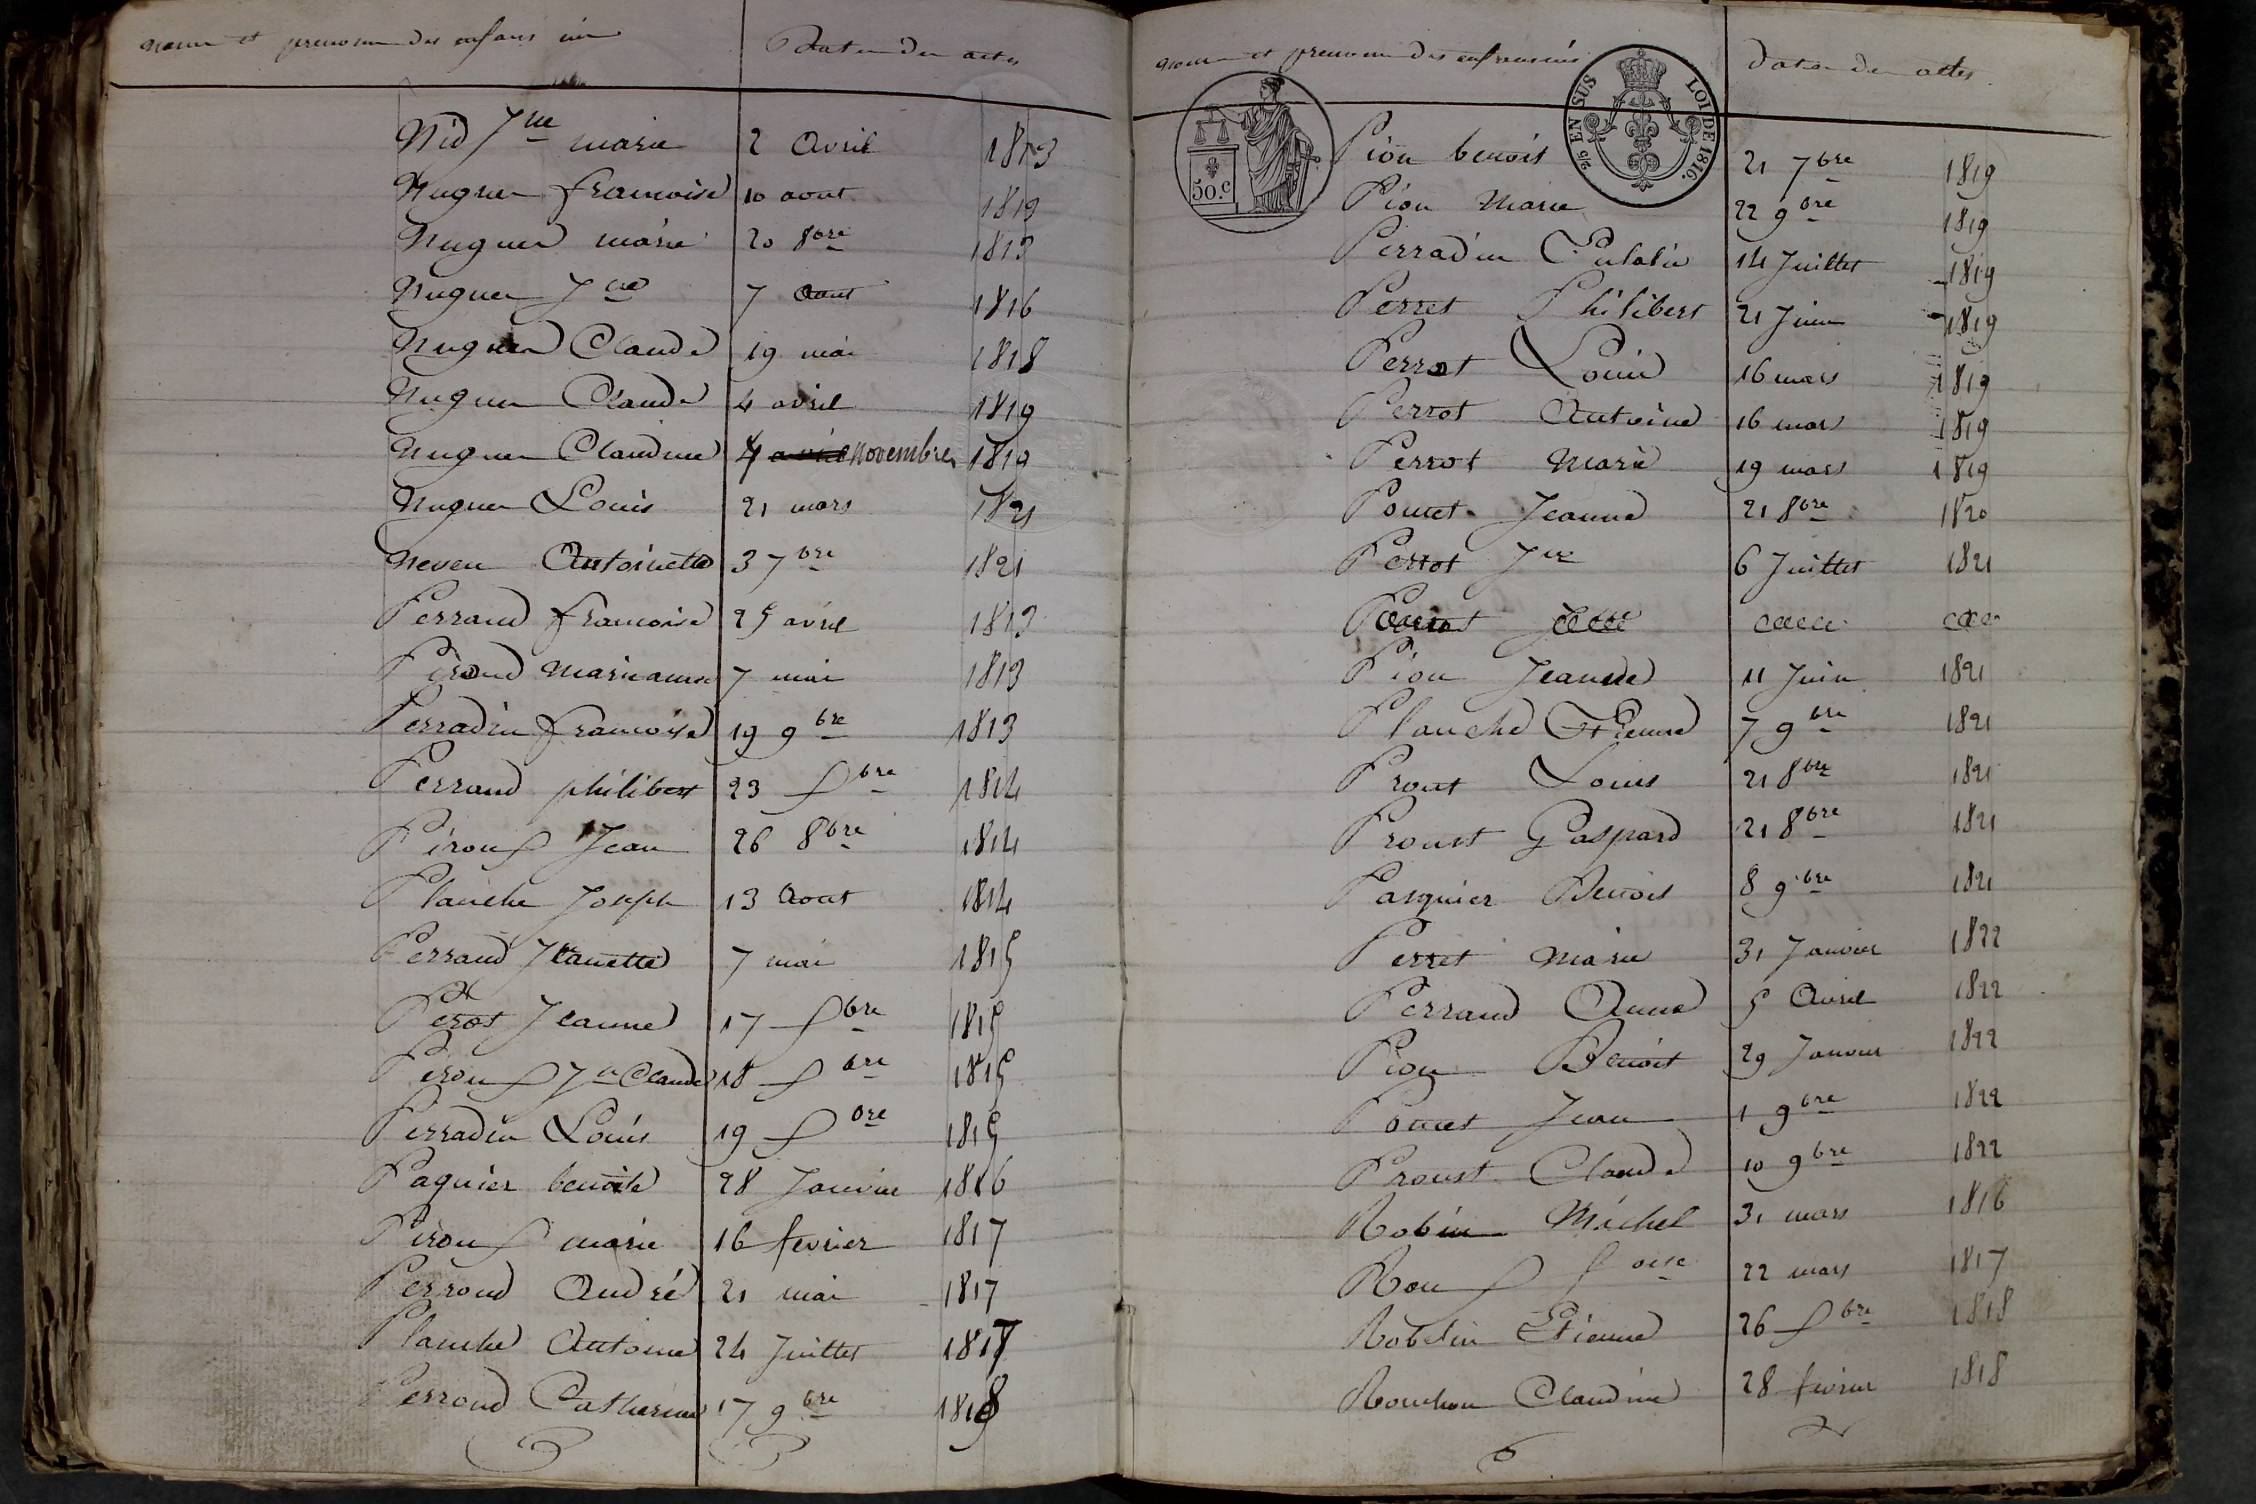 noms et prenoms des enfans nés Dates des actes
Nid Jne marie 2 avril 1813
Nugues francoise 10 aout 1813
Nugues marie 20 8bre 1813
Nugues Jne 7 aout 1816
Nugues Claude 19 mai 1818
Nugues Claude 4 avril 1819
Nugues Claudine 4 novembre 1819
Nugues Louis 21 mars 1821
Neveu Antoinette 3 7bre 1821
Perraud francoise 25 avril 1813
Piroud Marieanne 7 mai 1813
Perradin francoise 19 9bre 1813
Perraud philibert 23 Xbre 1814
Pirou Jean 26 8bre 1814
Planche Joseph 13 aout 1814
Perraud Jeanette 7 mai 1815
Perot Jeanne 17 Xbre 1815
Pirou Jn Claude 18 Xbre 1815
Perradin Louis 19 Xbre 1815
Paquier benoite 28 Janvier 1816
Pirou marie 16 fevrier 1817
Perroud André 21 mai 1817
Planche Antoine 24 Juillet 1817
Perroud Catherine 17 9bre 1818
noms et prenoms des enfans nés dates des actes
50.c
2/5 EN SUS LOI DE 1816.
Pion benoit 21 7bre 1819
Pion Marie 22 9bre 1819
Perradin Eulalie 14 Juillet 1819
Perret Philibert 21 Juin 1819
Perrot Louis 16 mars 1819
Perrot Antoine 16 mars 1819
Perrot Marie 19 mars 1819
Poncet Jeanne 21 8bre 1820
Perrot Jne 6 Juillet 1821
Pion Jeanne 11 Juin 1821
Planche Etienne 7 9bre 1821
Proust Louis 21 8bre 1821
Proust Gaspard 21 8bre 1821
Pasquier Benoit 8 9bre 1821
Perret Marie 31 Janvier 1822
Perraud Anne 5 Avril 1822
Pion Benoit 29 Janvier 1822
Poncet Jean 1 9bre 1822
Proust Claude 10 9bre 1822
Robin Michel 31 mars 1816
Rou foise 22 mars 1817
Robelin Etienne 26 Xbre 1818
Rouchon Claudine 28 fevrier 1818